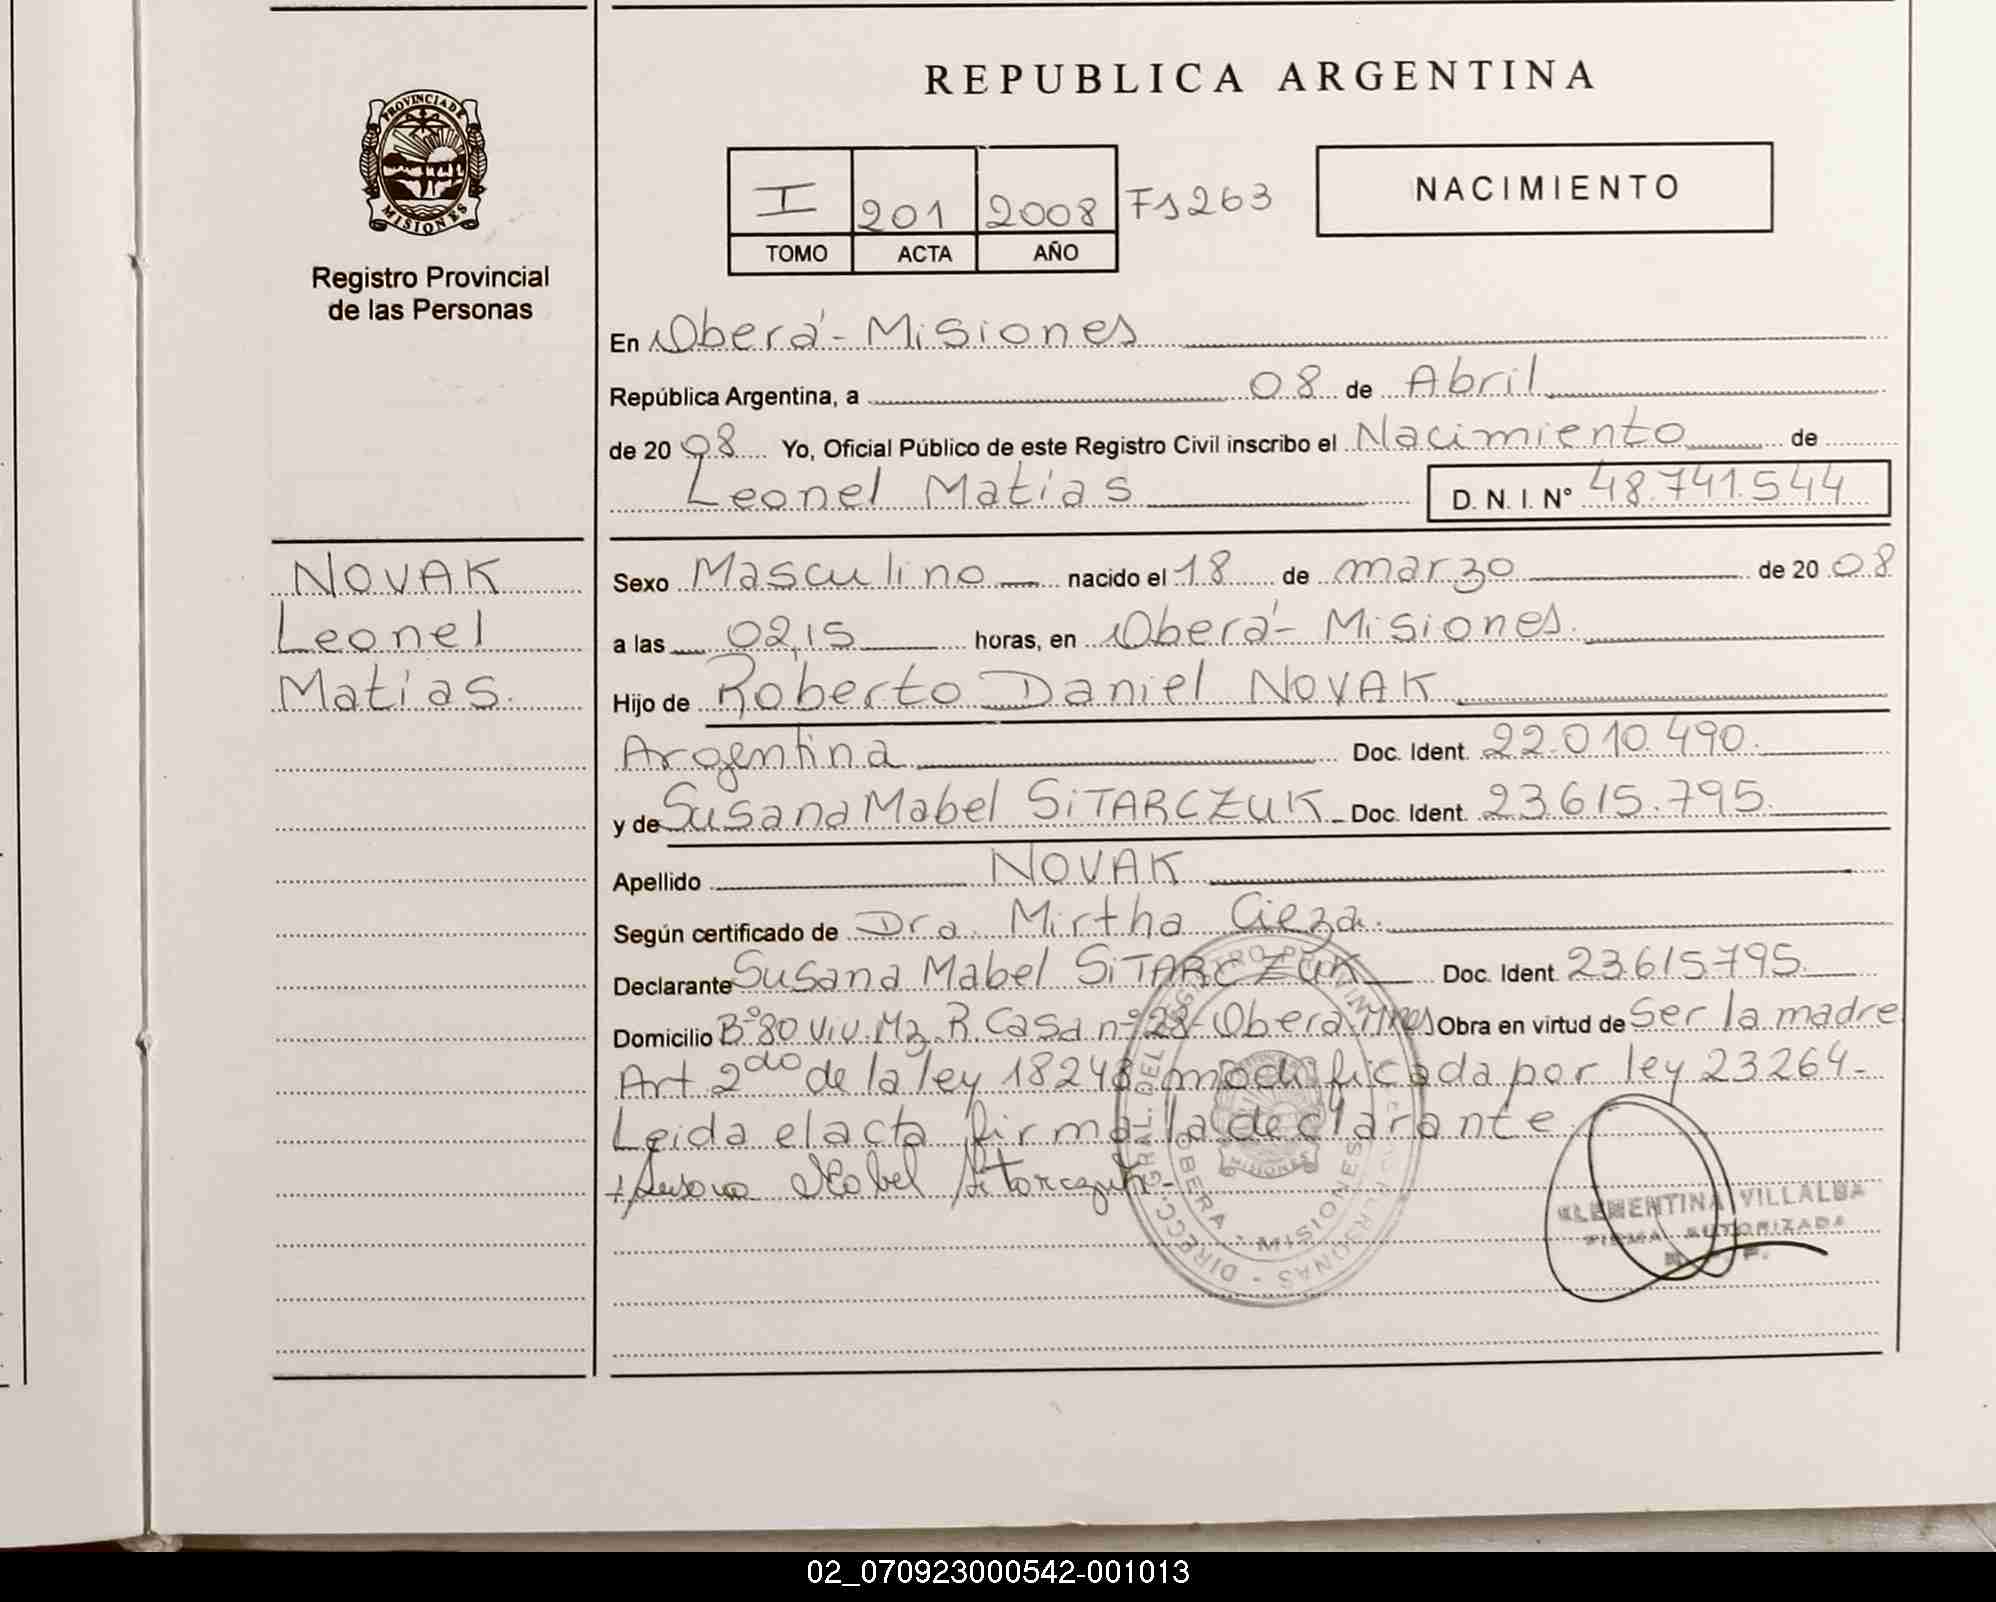 REPUBLICA ARGENTINA
PROVINCIA DE
MISIONES
Registro Provincial
de las Personas
I 201 2008 Fs 263
TOMO ACTA AÑO
NACIMIENTO
En Oberá - Misiones
República Argentina, a 08 de Abril
de 20 08 Yo, Oficial Público de este Registro Civil inscribo el Nacimiento de
Leonel Matías D. N. I. N° 48.741.544
NOVAK
Leonel
Matías.
Sexo Masculino nacido el 18 de marzo de 20 08
a las 02,15 horas, en Oberá - Misiones.
Hijo de Roberto Daniel NOVAK
Argentina Doc. Ident. 22.010.490.
y de Susana Mabel SiTARCZUK Doc. Ident. 23.615.795.
Apellido NOVAK
Según certificado de Dra. Mirtha Cieza.
Declarante Susana Mabel SiTARCZUK Doc. Ident. 23.615.795.
Domicilio B° 80 Viv. Mz R. Casa n° 28 - Oberá. Mnes Obra en virtud de Ser la madre
Art. 2do de la ley 18248 modificada por ley 23264-
Leida el acta firma la declarante
Susana Mabel Sitarczuk
DIRECC. GRAL. DEL REGISTRO PROVINCIAL DE LAS PERSONAS
OBERA - MISIONES
CLEMENTINA VILLALBA
FIRMA AUTORIZADA
02_070923000542-001013